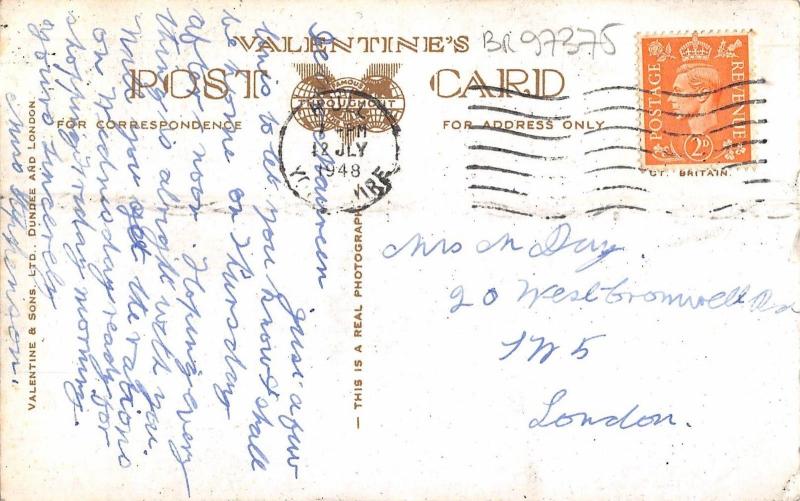 VALENTINE'S
BR 97375
POST CARD
FAMOUS
THROUGHOUT
FOR CORRESPONDENCE
FOR ADDRESS ONLY
PM
12 JLY
1948
POSTAGE
REVENUE
2D
GT. BRITAIN.
Dear
Just a few
lines to let you know I shall
be home on Thursday
after noon. Hoping every
thing is alright with you.
Will you get the rations
on Wednesday ready for
shopping Friday morning.
Yours sincerely
Miss Stephenson.
VALENTINE & SONS, LTD., DUNDEE AND LONDON.
— THIS IS A REAL PHOTOGRAPH
Mrs M Day.
20 West Cromwell Rd
SW5
London.